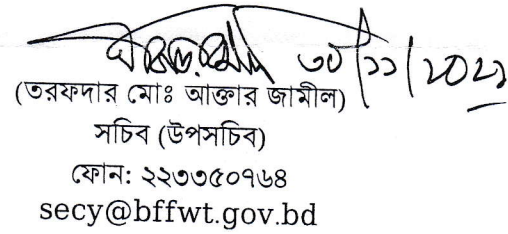 ৩০/১১/২০২১
(তরফদার মোঃ আক্তার জামীল)
সচিব (উপসচিব)
ফোন: ২২৩৩৫০৭৬৪
secy@bffwt.gov.bd